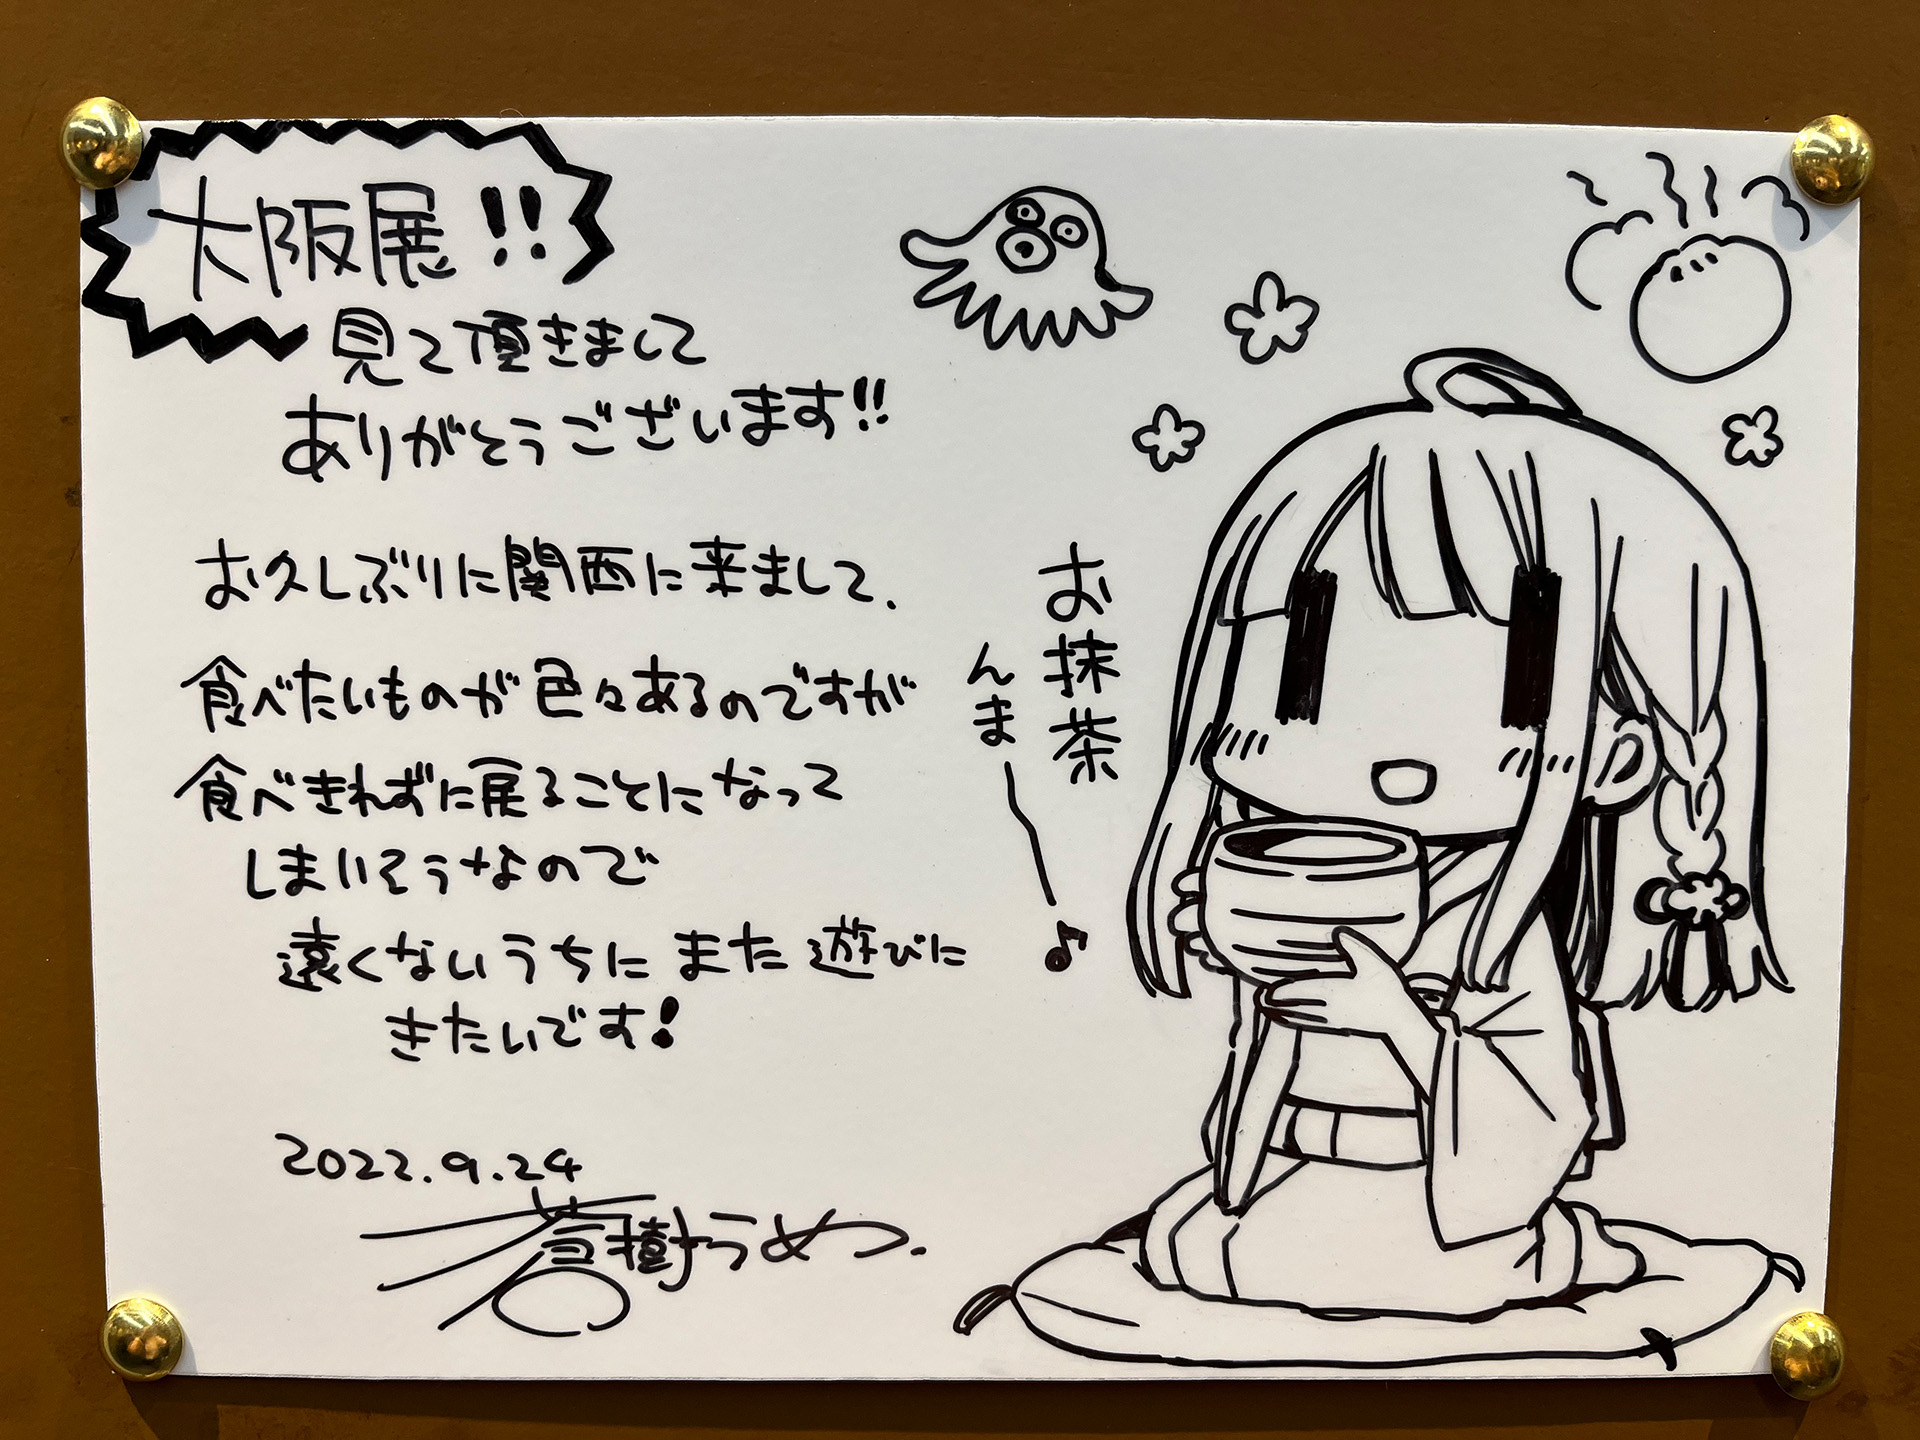 大阪展!!
見て頂きまして
ありがとうございます!!
お久しぶりに関西に来まして、
食べたいものが色々あるのですが
食べきれずに戻ることになって
しまいそうなので
遠くないうちにまた遊びに
きたいです!
2022.9.24
蒼樹うめ
お抹茶
んま〜♪